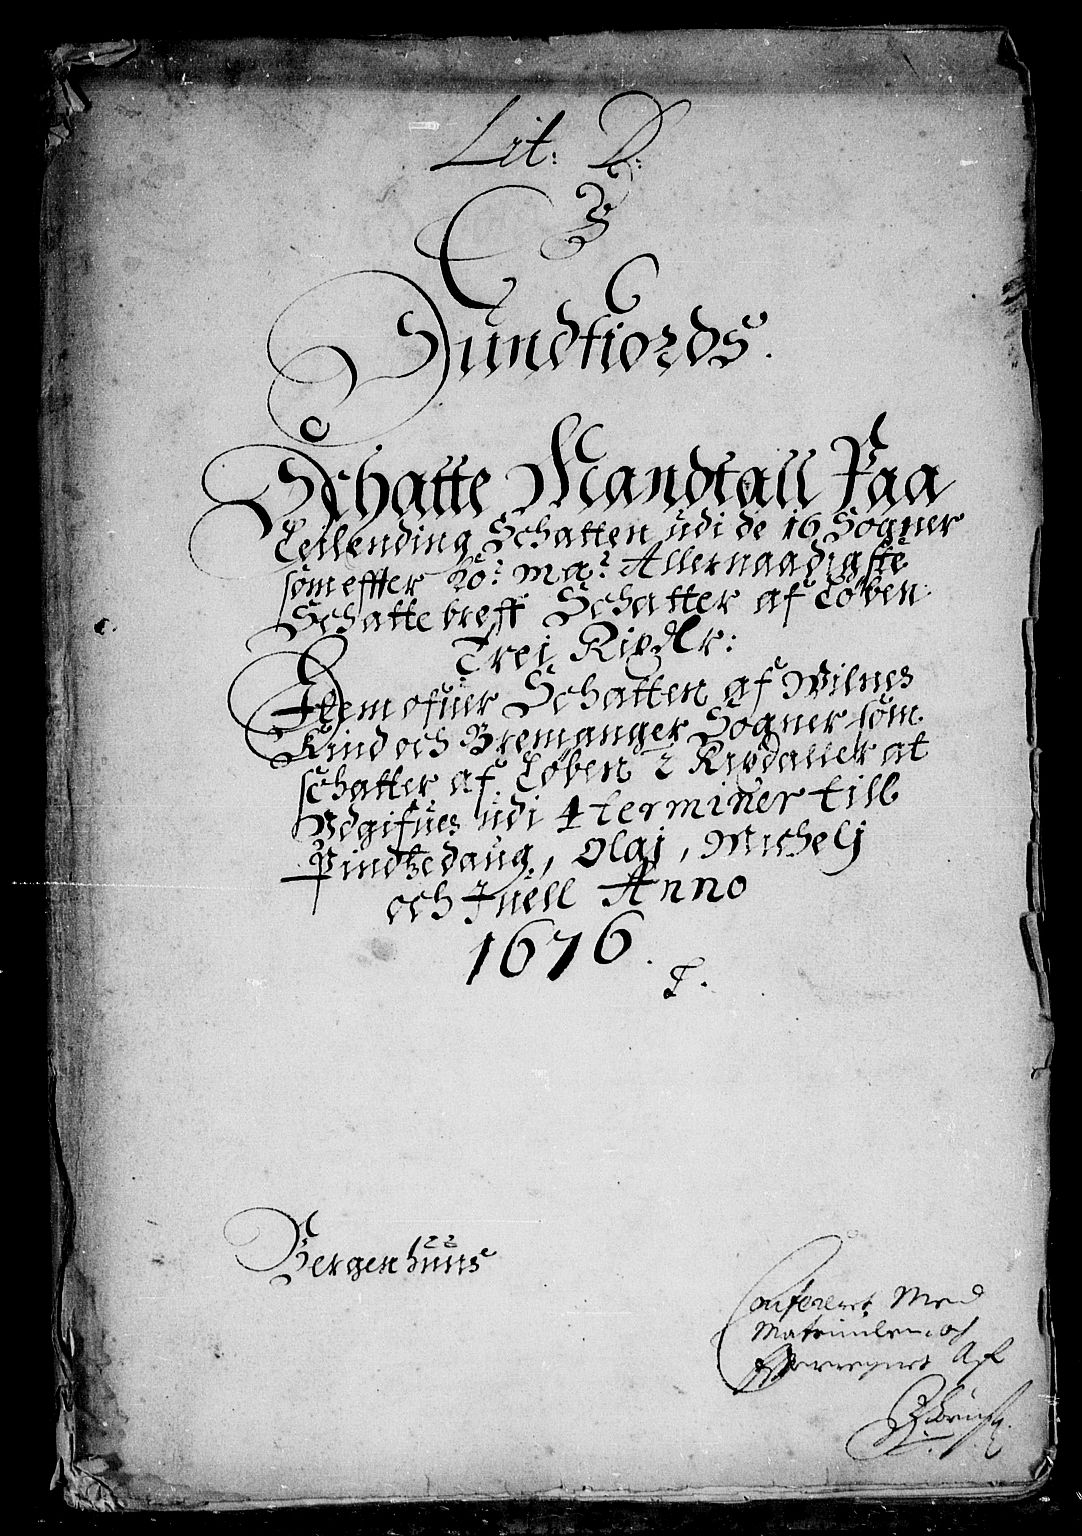 Lit: D:
3
Sundfiords.
Schatte Mandtall Paa
Leilending Schatten udi de 16 Sogner
som effter Ko: Ma: Allernaadigste
Schattebreff Schatter af Løben
Trei Rixdlr:
Item ofuer Schatten af Wilnes
Kind och Bremanger Sogner som
schatter af Løben 2 Rixdaller at
Udgifues udi 4 terminer till
Pindtzedaug, Olaj, Michelj
och Juell Anno
1676.
Bergenhuus
Confereret Med
Matriculen och
effterregnet Aff